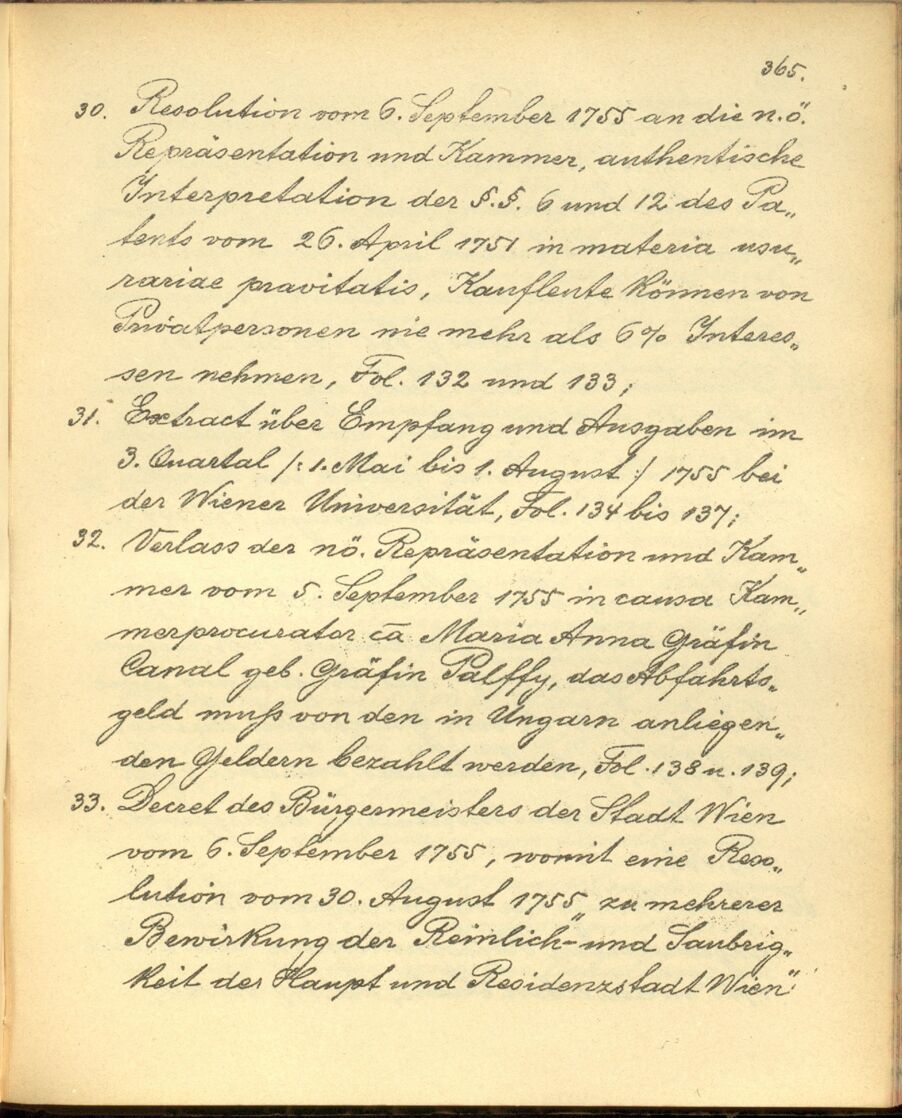 365.
30. Resolution vom 6. September 1755 an die n.ö.
Repräsentation und Kammer, authentische
Interpretation der §.§. 6 und 12 des Pa„
tents vom 26. April 1751 in materia usu„
rariae pravitatis, Kaufleute können von
Privatpersonen nie mehr als 6% Interes„
sen nehmen, Fol. 132 und 133;
31. Extract über Empfang und Ausgaben im
3. Quartal /: 1. Mai bis 1. August :/ 1755 bei
der Wiener Universität, Fol. 134 bis 137;
32. Verlass der nö. Repräsentation und Kam„
mer vom 5. September 1755 in causa Kam„
merprocurator ca̅ Maria Anna Gräfin
Canal geb. Gräfin Palffy, das Abfahrts„
geld muß von den in Ungarn anliegen„
den Geldern bezahlt werden, Fol. 138 u. 139;
33. Decret des Bürgermeisters der Stadt Wien
vom 6. September 1755, womit eine Reso„
lution vom 30. August 1755 „zu mehrerer
Bewirkung der Reinlich- und Saubrig„
keit der Haupt und Residenzstadt Wien"